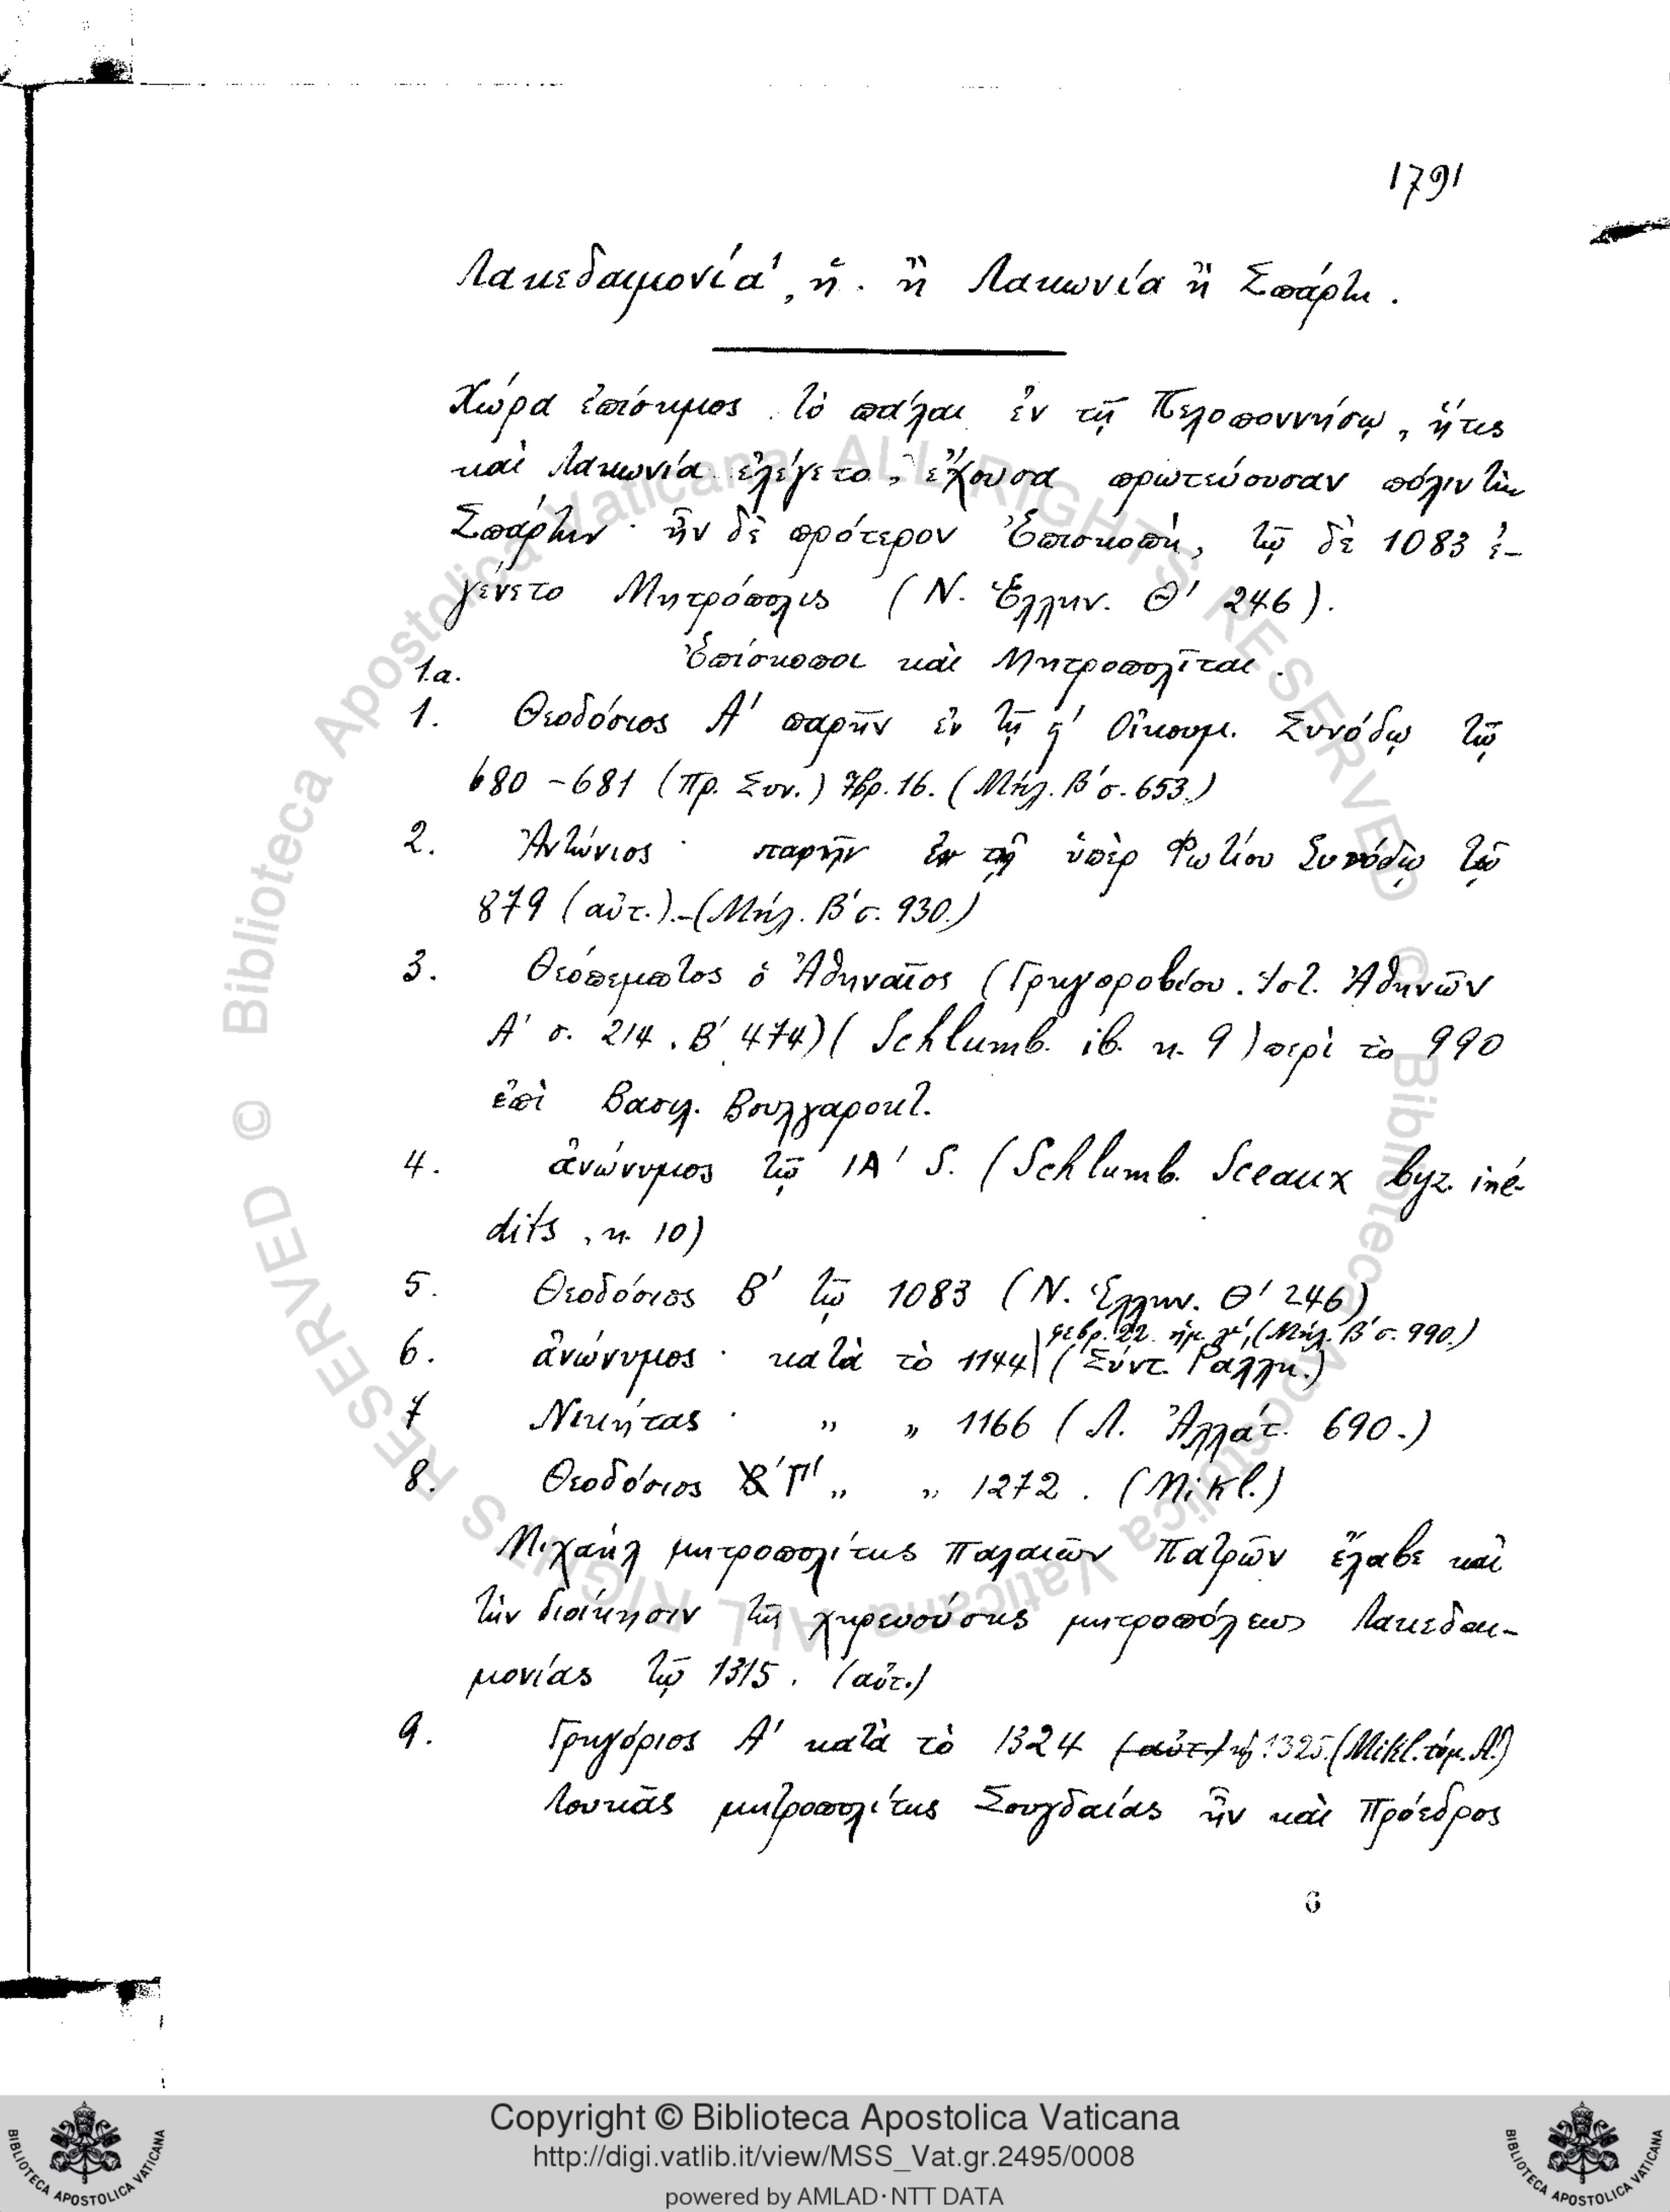 1791
Λακεδαιμονία, ἡ. ἢ Λακωνία ἢ Σπάρτη.
Χώρα ἐπίσημος τὸ πάλαι ἐν τῇ Πελοποννήσῳ, ἥτις
καὶ Λακωνία ἐλέγετο, ἔχουσα πρωτεύουσαν πόλιν τὴν
Σπάρτην· ἦν δὲ πρότερον Ἐπισκοπὴ, τῷ δὲ 1083 ἐ-
γένετο Μητρόπολις (Ν. Ἑλλην. Θ' 246).
Ἐπίσκοποι καὶ Μητροπολῖται.
1.α.
1. Θεοδόσιος Α' παρῆν ἐν τῇ ϛ' Οἰκουμ. Συνόδῳ τῷ
680-681 (Πρ. Συν.) 7βρ. 16. (Μήλ. Β' σ. 653.)
2. Ἀντώνιος· παρῆν ἐν τῇ ὑπὲρ Φωτίου Συνόδῳ τῷ
879 (αὐτ.).-(Μήλ. Β' σ. 930.)
3. Θεόπεμπτος ὁ Ἀθηναῖος (Γρηγοροβίου. Ἱστ. Ἀθηνῶν
Α' σ. 214. Β' 474) (Schlumb. ib. n. 9) περὶ τὸ 990
ἐπὶ Βασιλ. Βουλγαροκτ.
4. ἀνώνυμος τῷ ΙΑ' S. (Schlumb. Sceaux byz. iné-
dits, n. 10)
5. Θεοδόσιος Β' τῷ 1083 (Ν. Ἑλλην. Θ' 246)
φεβρ. 22. ἡμ. γ', (Μήλ. Β' σ. 990.)
6. ἀνώνυμος· κατὰ τὸ 1144 (Σύντ. Ῥάλλη.)
7 Νικήτας· „ „ 1166 (Λ. Ἀλλάτ. 690.)
8. Θεοδόσιος Β' Γ' „ „ 1272. (Mikl.)
Μιχαὴλ μητροπολίτης Παλαιῶν Πατρῶν ἔλαβε καὶ
τὴν διοίκησιν τῆς χηρευούσης μητροπόλεως Λακεδαι-
μονίας τῷ 1315. (αὐτ.)
9. Γρηγόριος Α' κατὰ τὸ 1324 (αὐτ.) κ. 1325. (Mikl. τόμ. Α'.)
Λουκᾶς μητροπολίτης Σουγδαίας ἦν καὶ Πρόεδρος
6
© Biblioteca Apostolica Vaticana ALL RIGHTS RESERVED
© Biblioteca Apostolica Vaticana ALL RIGHTS RESERVED
Copyright © Biblioteca Apostolica Vaticana
http://digi.vatlib.it/view/MSS_Vat.gr.2495/0008
powered by AMLAD·NTT DATA
BIBLIOTECA APOSTOLICA VATICANA
BIBLIOTECA APOSTOLICA VATICANA